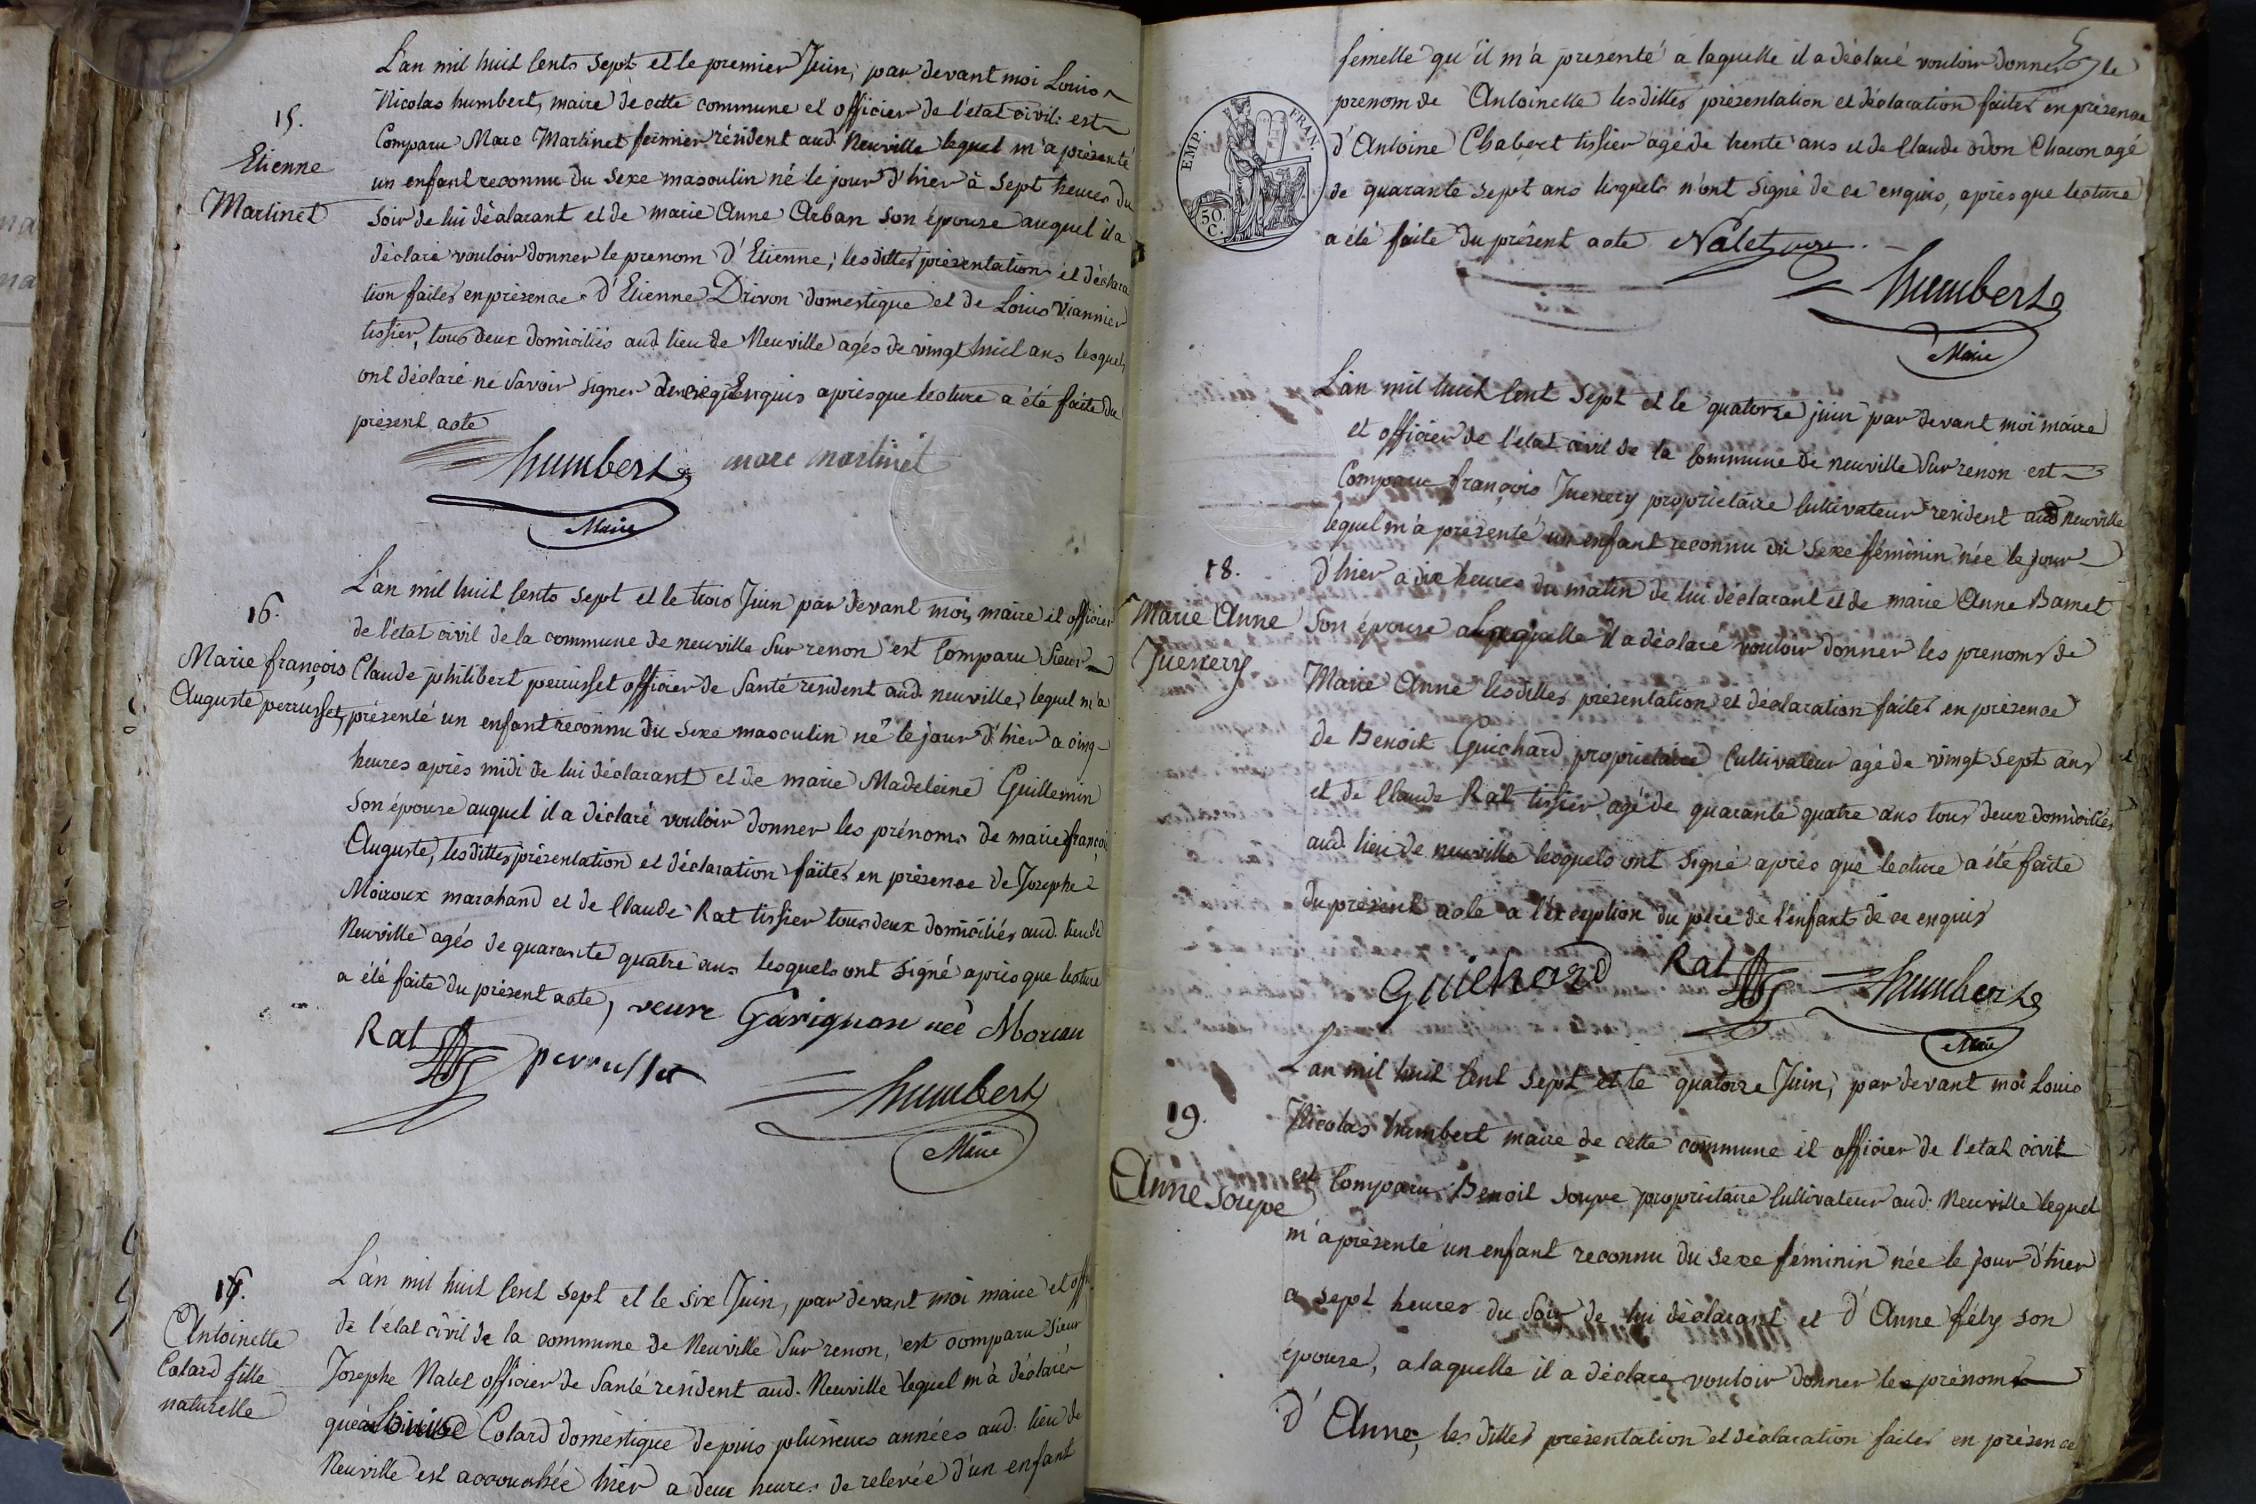 L'an mil huit Cents Sept et le premier Juin, par devant moi Louis
Nicolas humbert, maire de cette commune et officier de l'etat civil: est
Comparu Marc Martinet fermier résident aud. Neuville lequel m'a présenté
un enfant reconnu du Sexe masculin né le jour d'hier à Sept heures du
Soir de lui déclarant et de marie Anne Arban Son épouse auquel il a
déclaré vouloir donner le prenom d'Etienne; lesdittes présentation et déclara
tion faites en présence d'Etienne Drivon domestique et de Louis Viannier
tissier, tous deux domiciliés aud. lieu de Neuville agés de vingt huit ans lesquels
ont déclaré ne Savoir Signer de ce Enquis après que lecture a été faite du
présent acte
15.
Etienne
Martinet
humbert marc martinet
Maire
L'an mil huit Cents Sept et le trois Juin par devant moi, maire et officier
de l'etat civil de la commune de neuville Sur renon est Comparu Sieur
Claude philibert perrusset officier de Santé resident aud. neuville, lequel m'a
présenté un enfant reconnu du Sexe masculin né le jour d'hier a cinq
heures après midi de lui déclarant et de marie Madeleine Guillemin
Son épouse auquel il a déclaré vouloir donner les prénoms de marie françois
Auguste, lesdittes présentation et déclaration faites en présence de Josephe
Moiroux marchand et de Claude Rat tissier tous deux domiciliés aud. lieu de
Neuville agés de quarante quatre ans lesquels ont Signé après que lecture
a été faite du présent acte,
16.
Marie françois
Auguste perrusset
veuve Garignon née Moreau
Rat perrusset
humbert
Maire
L'an mil huit Cent Sept et le Six Juin, par devant moi maire et off.
de l'état civil de la commune de Neuville Sur renon, est comparu Sieur
Josephe Nalet officier de Santé resident aud. Neuville lequel m'a déclarer
que Louise Colard domestique depuis plusieurs années aud. lieu de
Neuville est accouchée hier a deux heures de relevée d'un enfant
17.
Antoinette
Colard fille
naturelle
5
femelle qu'il m'a présenté a laquelle il a déclaré vouloir donner le
prenom de Antoinette lesdittes présentation et déclaration faites en présence
d'Antoine Chabert tissier agé de trente ans et de Claude odon Chacon agé
de quarante Sept ans lesquels n'ont Signé de ce enquis, après que lecture
a été faite du présent acte
EMP. FRAN.
50.
C.
Nalet
humbert
Maire
L'an mil huit Cent Sept et le quatorze juin par devant moi maire
et officier de l'etat civil de la Commune de neuville Sur renon est
Comparu françois Juenery propriétaire Cultivateur resident aud neuville
lequel m'a présenté un enfant reconnu du Sexe féminin née le jour
d'hier a dix heures du matin de lui déclarant et de marie Anne Bamet
Son épouse a laquelle il a déclaré vouloir donner les prenoms de
Marie Anne lesdittes présentation et déclaration faites en présence
de Benoit Guichard propriétaire Cultivateur agé de vingt Sept ans
et de Claude Rat tissier agé de quarante quatre ans tous deux domiciliés
aud. lieu de neuville lesquels ont Signé après que lecture a été faite
du présent acte a l'exception du père de l'enfant de ce enquis
18.
Marie Anne
Juenery
Guichard Rat humbert
Maire
L'an mil huit Cent Sept et le quatorze Juin, par devant moi Louis
Nicolas humbert maire de cette commune et officier de l'etat civil
est Comparu Benoit Soupe propriétaire Cultivateur aud. Neuville lequel
m'a présenté un enfant reconnu du Sexe féminin née le jour d'hier
a sept heures du Soir de lui déclarant et d'Anne fély son
épouse, a laquelle il a déclaré vouloir donner le prénom
d'Anne, lesdittes présentation et déclaration faites en présence
19.
Anne Soupe